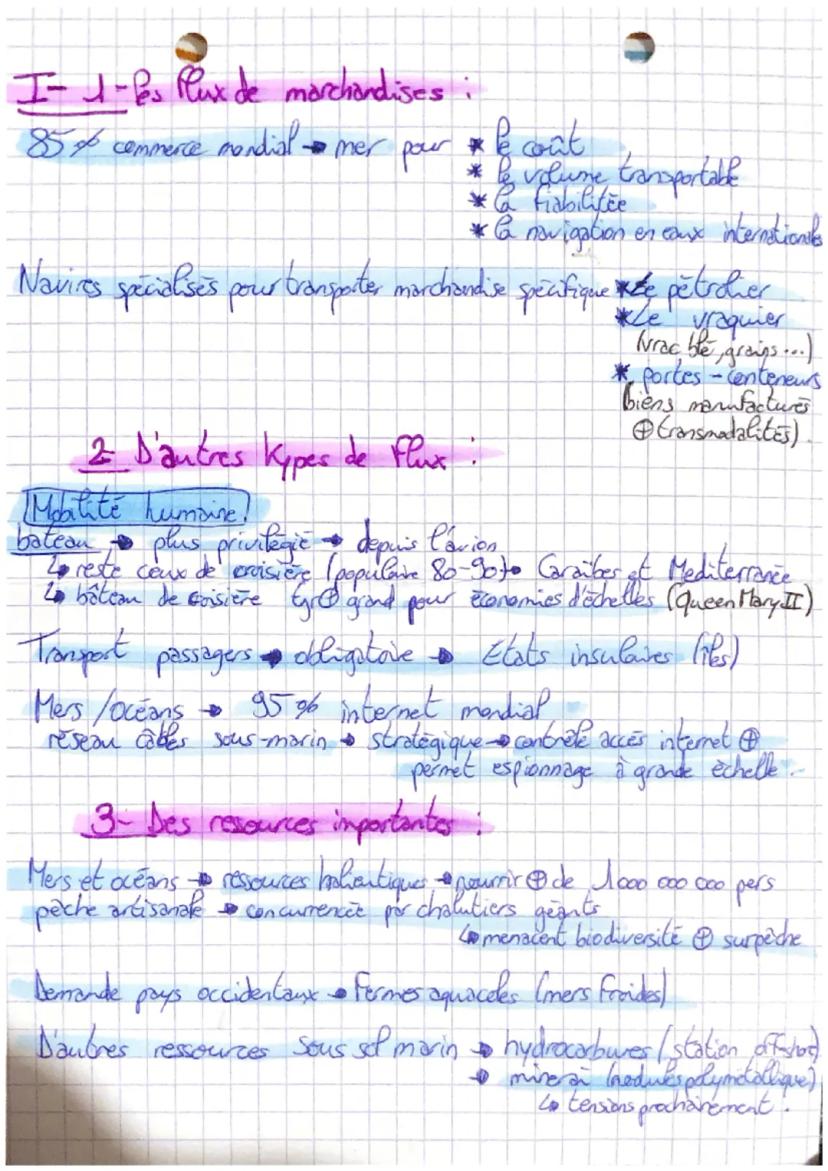 I- 1- Les flux de marchandises :
85% commerce mondial → mer pour * le coût
* le volume transportable
* la fiabilitée
* la navigation en eaux internationales
Navires spécialisés pour transporter marchandise spécifique * Le pétrolier
* Le vraquier
(vrac blé, grains ...)
* portes-conteneurs
(biens manufacturés
⊕ transmodalités)
2- D'autres types de flux :
Mobilité humaine
bateau → plus privilégié → depuis l'avion
↳ reste ceux de croisière (populaire 80-90) → Caraïbes et Mediterranée
↳ bâteau de croisière tjr ⊕ grand pour économies d'échelles (Queen Mary II)
Transport passagers → obligatoire → Etats insulaires (îles)
Mers /océans → 95% internet mondial
réseau câbles sous-marin → stratégique → contrôle accès internet ⊕
permet espionnage à grande échelle.
3- Des ressources importantes :
Mers et océans → ressources halieutiques → nourrir ⊕ de 1000 000 000 pers
pêche artisanale → concurrencée par chalutiers géants
↳ menacent biodiversité ⊕ surpêche
Demande pays occidentaux → Fermes aquacoles (mers froides)
D'autres ressources sous sol marin → hydrocarbures (station off-shore)
→ minerai (nodules polymétallique)
↳ tensions prochainement.